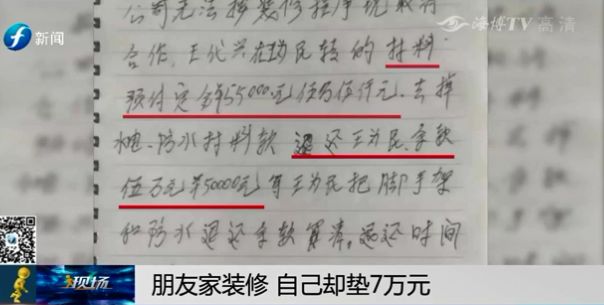 新闻
海博TV 高清
公司无法按装修程序现取消
合作,王代兴在 民转的材料
预付定金¥55000元伍万伍仟元.去掉
防水材料款 退还王为民余款
伍万元¥50000元 等王为民把脚手架
和防水退还余款算清,退还时间
现场
朋友家装修 自己却垫7万元